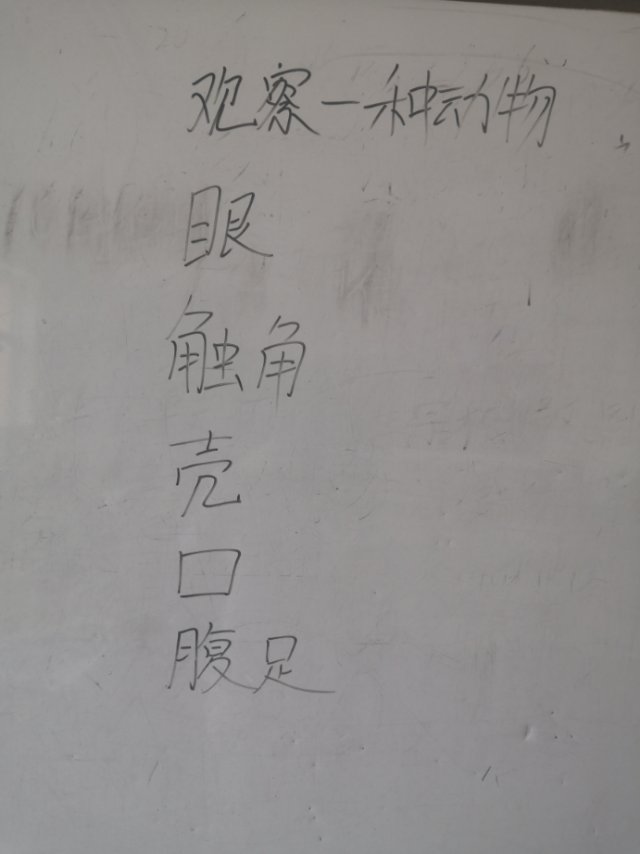 观察一种动物
眼
触角
壳
口
腹足